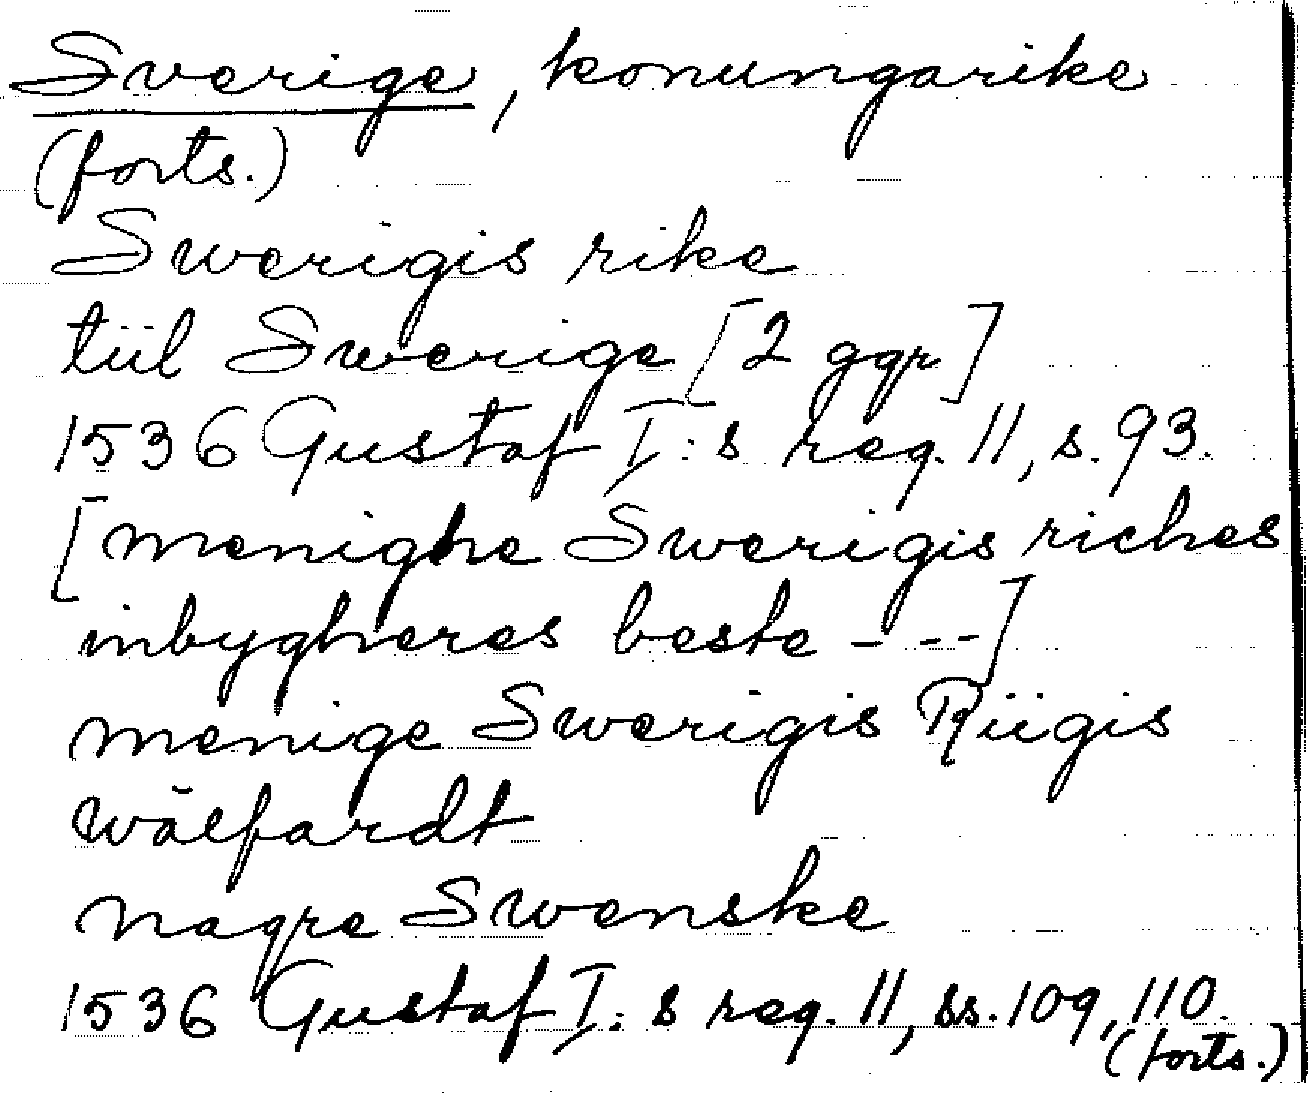 Sverige, konungarike
(forts.)
Swerigis rike
tiil Swerige [2 ggr]
1536 Gustaf I:s reg. 11, s. 93.
[menighe Swerigis riches
inbygheres beste - - -]
menige Swerigis Riigis
wälfardt
nagre Swenske
1536 Gustaf I:s reg. 11, ss. 109, 110.
(forts.)